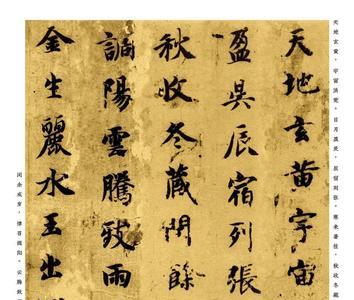 天地玄黄，宇宙洪荒。日月盈昃，辰宿列张。寒来暑往，秋收冬藏
天地玄黄宇宙
盈昃辰宿列張
秋收冬藏閏餘
調陽雲騰致雨
金生麗水玉出
闰余成岁，律召调阳。云腾致